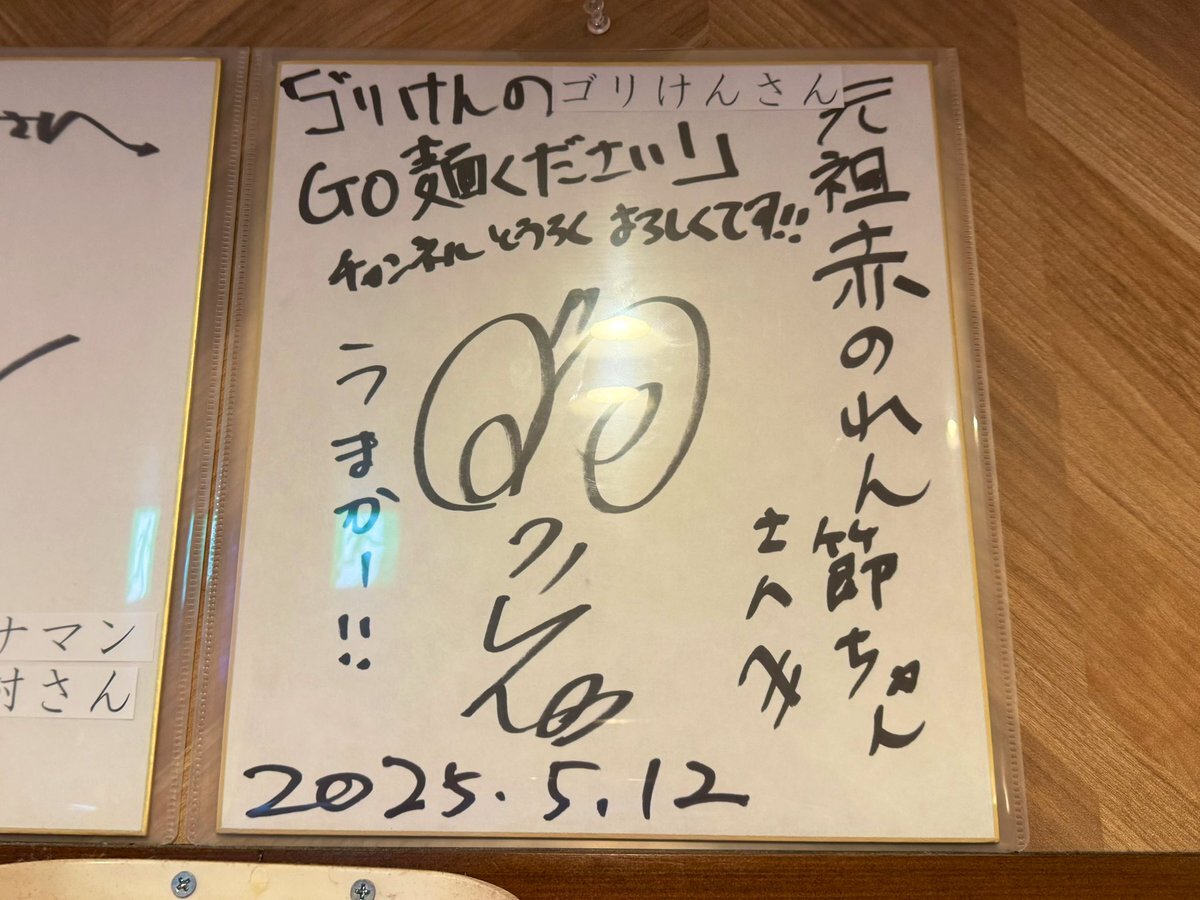 元祖赤のれん節ちゃん
さんへ
「ゴりけんの
ゴリけんさん
GO麺ください!」
チャンネルとうろくよろしくです!!
うまかー!!
2025.5.12
ナマン
村さん